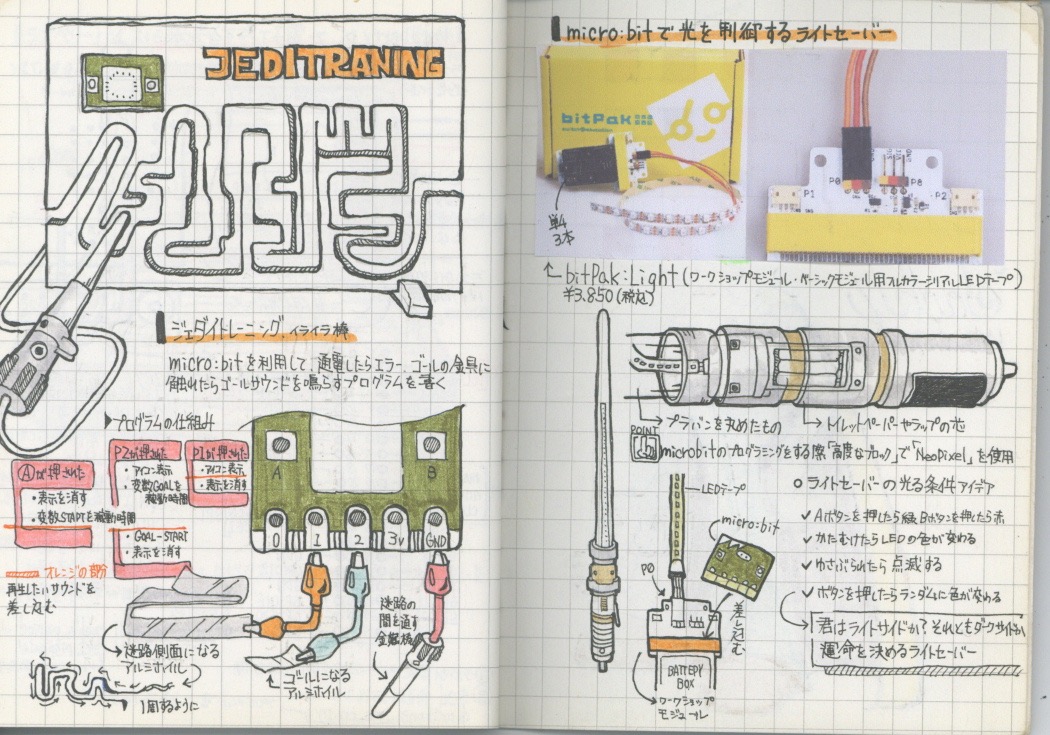 JEDITRANING
ジェダイトレーニング、イライラ棒
micro:bitを利用して、通電したらエラー、ゴールの金具に
触れたらゴールサウンドを鳴らすプログラムを書く
▶プログラムの仕組み
Ⓐが押された
・表示を消す
・変数STARTを稼動時間
P2が押された
・アイコン表示
・変数GOALを
稼動時間
・GOAL-START
・表示を消す
P1が押された
・アイコン表示
・表示を消す
オレンジの部分
再生したいサウンドを
差し込む
A
B
0
1
2
3V
GND
迷路側面になる
アルミホイル
1周するように
ゴールになる
アルミホイル
迷路の
間を通す
金属棒
micro:bitで光を制御するライトセーバー
bitPak
P1
P0
P8
P2
単4
3本
bitPak:Light(ワークショップモジュール・ベーシックモジュール用フルカラーシリアルLEDテープ)
¥3,850(税込)
プラバンを丸めたもの
トイレットペーパーやラップの芯
POINT
microbitのプログラミングをする際「高度なブロック」で「NeoPixel」を使用
LEDテープ
micro:bit
P0
差し込む
BATTERY
BOX
ワークショップ
モジュール
○ライトセーバーの光る条件アイデア
✓Aボタンを押したら緑、Bボタンを押したら赤
✓かたむけたらLEDの色が変わる
✓ゆさぶられたら点滅する
✓ボタンを押したらランダムに色が変わる
君はライトサイドか?それともダークサイドか
運命を決めるライトセーバー